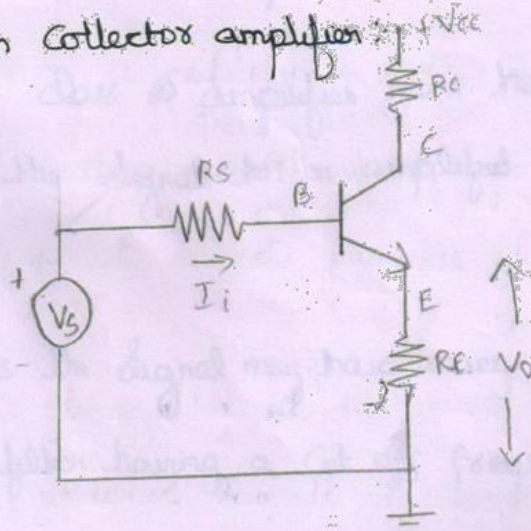 Collector amplifier :-
+Vcc
Rc
C
Rs
B
Ii
+
Vs
-
E
Vo